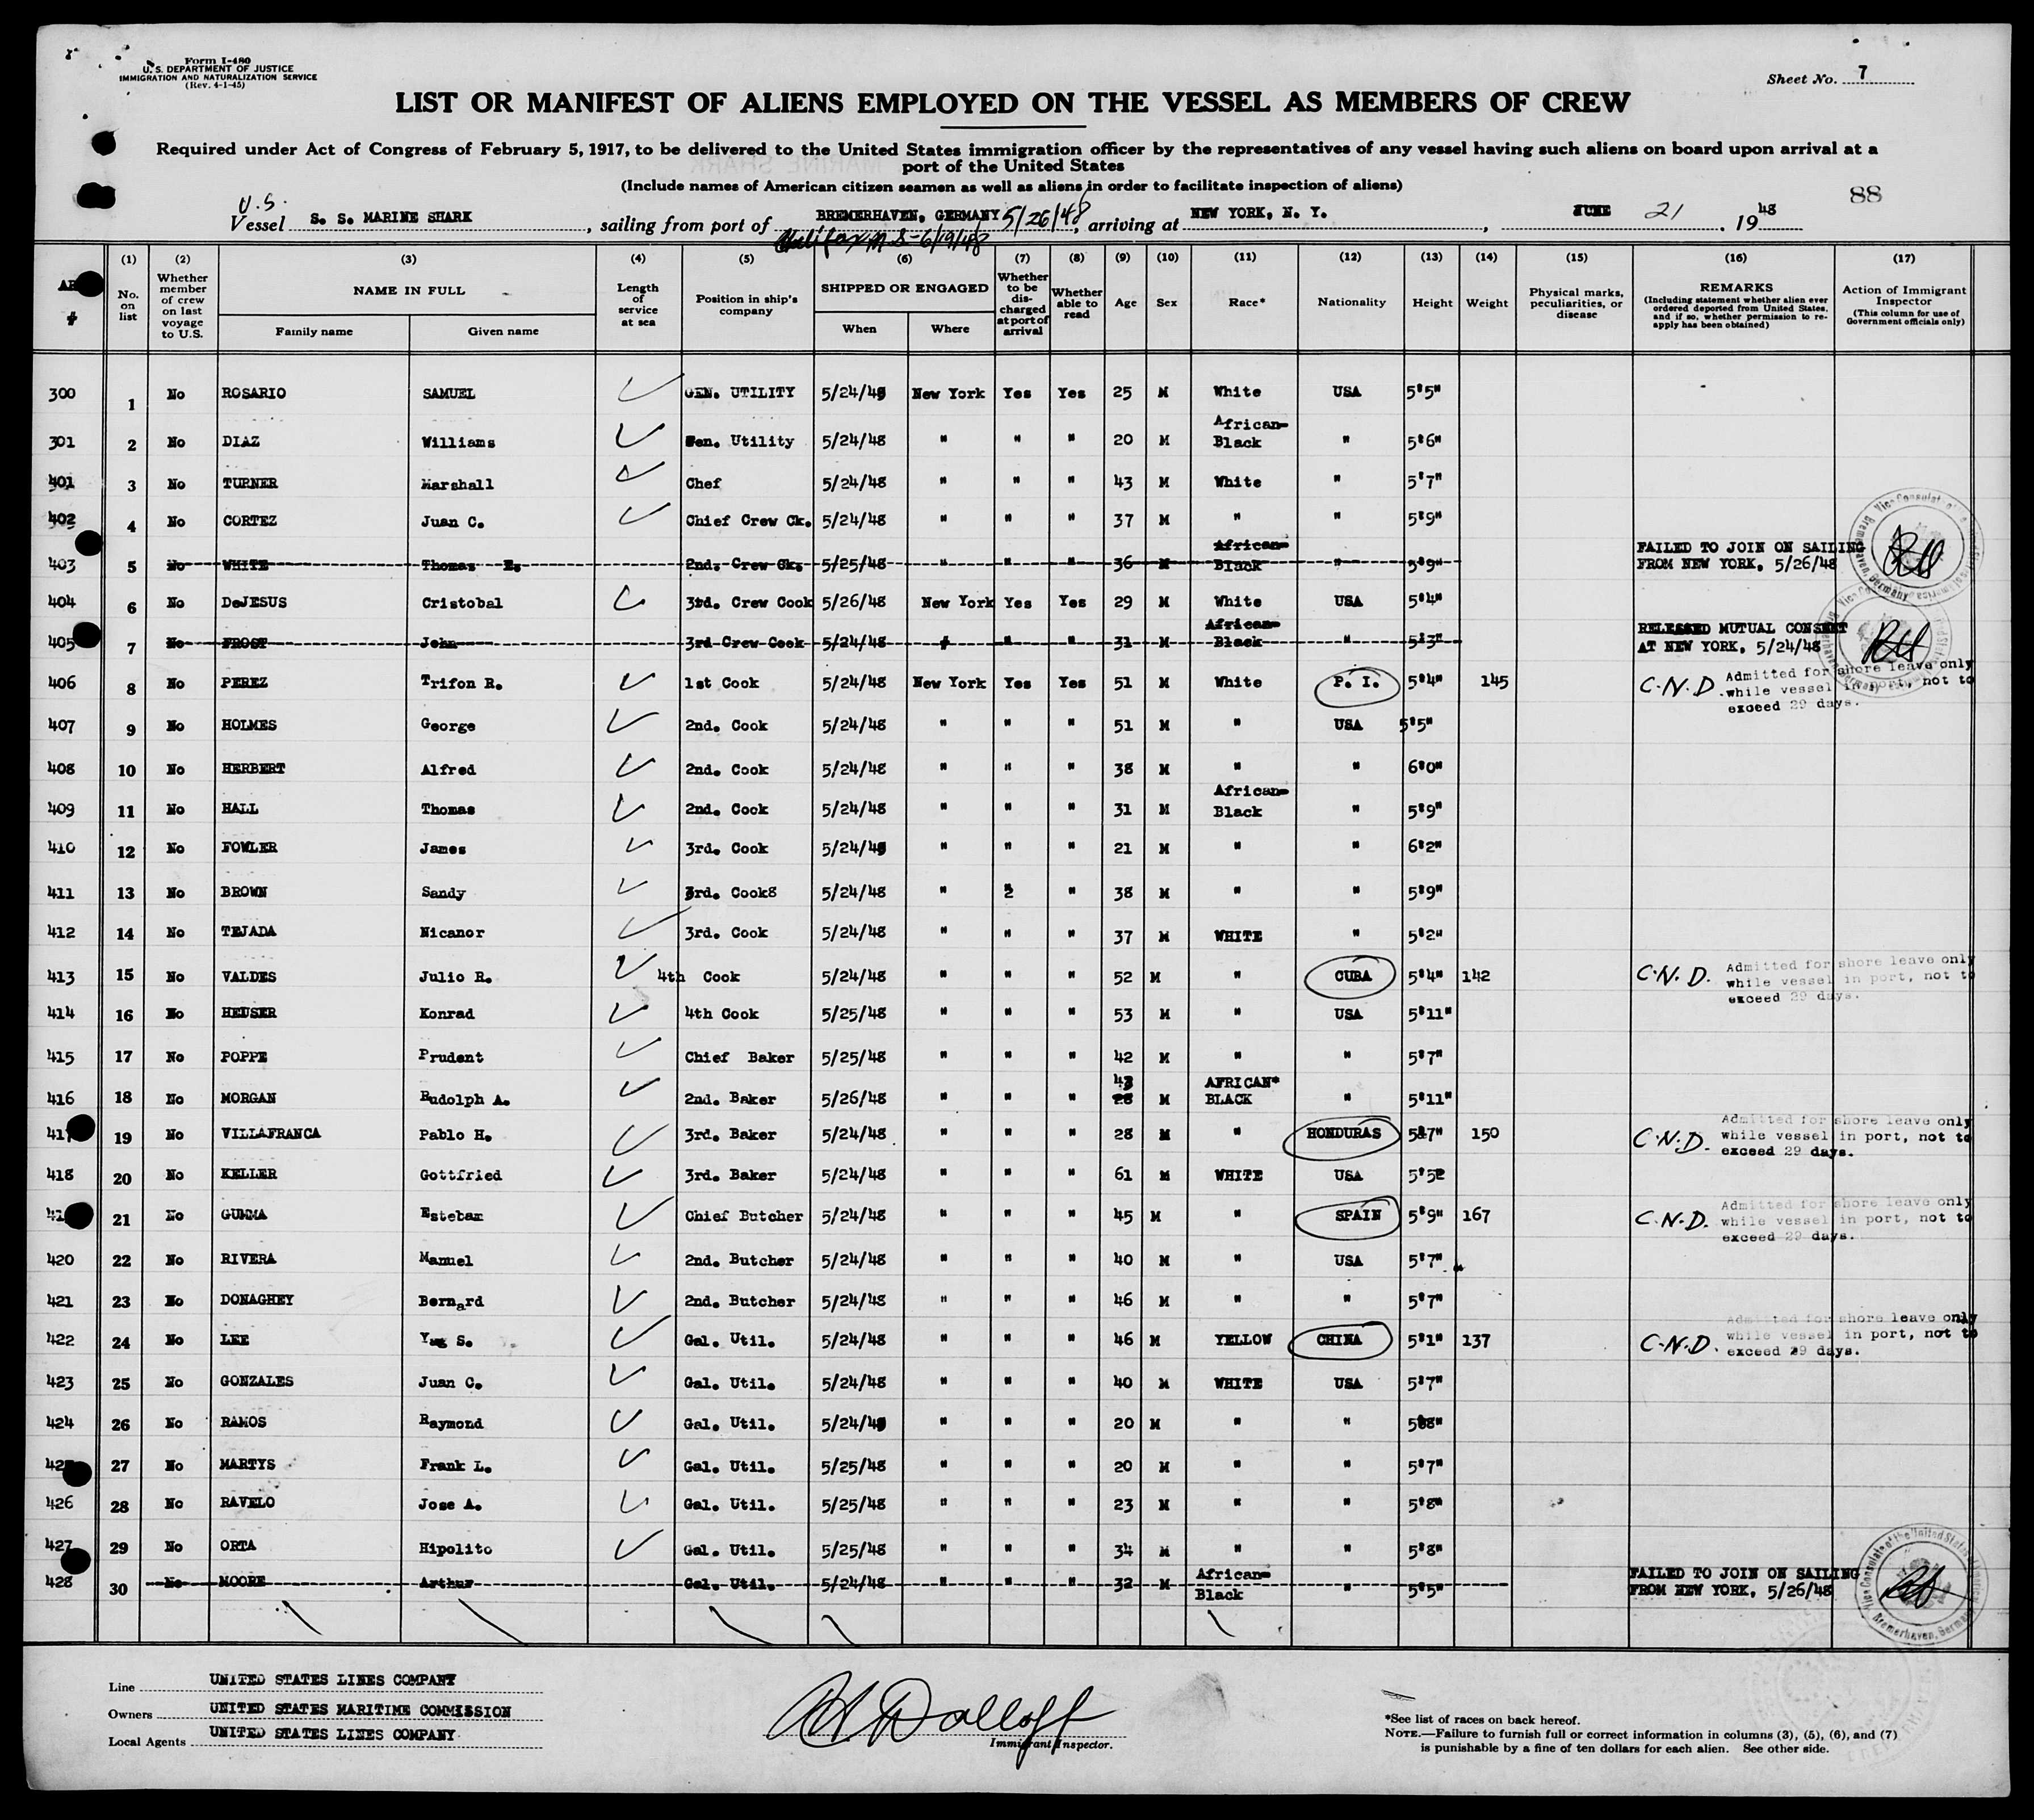 Form I-480
U. S. DEPARTMENT OF JUSTICE
IMMIGRATION AND NATURALIZATION SERVICE
(Rev. 4-1-45)
Sheet No. 7
LIST OR MANIFEST OF ALIENS EMPLOYED ON THE VESSEL AS MEMBERS OF CREW
Required under Act of Congress of February 5, 1917, to be delivered to the United States immigration officer by the representatives of any vessel having such aliens on board upon arrival at a
port of the United States
(Include names of American citizen seamen as well as aliens in order to facilitate inspection of aliens)
88
U.S.
Vessel S. S. MARINE SHARK, sailing from port of BREMERHAVEN, GERMANY 5/26/48, arriving at NEW YORK, N. Y., JUNE 21, 1948
Halifax N.S - 6/19/48
(1) No. on list
(2) Whether member of crew on last voyage to U.S.
(3) NAME IN FULL Family name Given name
(4) Length of service at sea
(5) Position in ship's company
(6) SHIPPED OR ENGAGED When Where
(7) Whether to be discharged at port of arrival
(8) Whether able to read
(9) Age
(10) Sex
(11) Race*
(12) Nationality
(13) Height
(14) Weight
(15) Physical marks, peculiarities, or disease
(16) REMARKS (Including statement whether alien ever ordered deported from United States, and if so, whether permission to reapply has been obtained)
(17) Action of Immigrant Inspector (This column for use of Government officials only)
300 1 No ROSARIO SAMUEL GEN. UTILITY 5/24/48 New York Yes Yes 25 M White USA 5'5"
301 2 No DIAZ Williams Gen. Utility 5/24/48 " " " 20 M African-Black " 5'6"
401 3 No TURNER Marshall Chef 5/24/48 " " " 43 M White " 5'7"
402 4 No CORTEZ Juan C. Chief Crew Ck. 5/24/48 " " " 37 M " " 5'9"
403 5 No WHITE Thomas E. 2nd. Crew Ck. 5/25/48 " " " 36 M African-Black " 5'9" FAILED TO JOIN ON SAILING FROM NEW YORK, 5/26/48
404 6 No DeJESUS Cristobal 3rd. Crew Cook 5/26/48 New York Yes Yes 29 M White USA 5'4"
405 7 No FROST John 3rd Crew Cook 5/24/48 " " " 31 M African-Black " 5'3" RELEASED MUTUAL CONSENT AT NEW YORK, 5/24/48
406 8 No PEREZ Trifon R. 1st Cook 5/24/48 New York Yes Yes 51 M White P. I. 5'4" 145 C.N.D Admitted for shore leave only while vessel in port, not to exceed 29 days.
407 9 No HOLMES George 2nd. Cook 5/24/48 " " " 51 M " USA 5'5"
408 10 No HERBERT Alfred 2nd. Cook 5/24/48 " " " 38 M " " 6'0"
409 11 No HALL Thomas 2nd. Cook 5/24/48 " " " 31 M African-Black " 5'9"
410 12 No FOWLER James 3rd. Cook 5/24/48 " " " 21 M " " 6'2"
411 13 No BROWN Sandy 3rd. Cook8 5/24/48 " 2 " 38 M " " 5'9"
412 14 No TEJADA Nicanor 3rd. Cook 5/24/48 " " " 37 M WHITE " 5'2"
413 15 No VALDES Julio R. 4th Cook 5/24/48 " " " 52 M " CUBA 5'4" 142 C.N.D. Admitted for shore leave only while vessel in port, not to exceed 29 days.
414 16 No HEUSER Konrad 4th Cook 5/25/48 " " " 53 M " USA 5'11"
415 17 No POPPE Prudent Chief Baker 5/25/48 " " " 42 M " " 5'7"
416 18 No MORGAN Rudolph A. 2nd. Baker 5/26/48 " " " 43 28 M AFRICAN* BLACK " 5'11"
417 19 No VILLAFRANCA Pablo H. 3rd. Baker 5/24/48 " " " 28 M " HONDURAS 5'7" 150 C.N.D. Admitted for shore leave only while vessel in port, not to exceed 29 days.
418 20 No KELLER Gottfried 3rd. Baker 5/24/48 " " " 61 M WHITE USA 5'52
21 No GUMMA Esteban Chief Butcher 5/24/48 " " " 45 M " SPAIN 5'9" 167 C.N.D. Admitted for shore leave only while vessel in port, not to exceed 29 days.
420 22 No RIVERA Manuel 2nd. Butcher 5/24/48 " " " 40 M " USA 5'7"
421 23 No DONAGHEY Bernard 2nd. Butcher 5/24/48 " " " 46 M " " 5'7"
422 24 No LEE S. Gal. Util. 5/24/48 " " " 46 M YELLOW CHINA 5'1" 137 C.N.D. Admitted for shore leave only while vessel in port, not to exceed 29 days.
423 25 No GONZALES Juan C. Gal. Util. 5/24/48 " " " 40 M WHITE USA 5'7"
424 26 No RAMOS Raymond Gal. Util. 5/24/48 " " " 20 M " " 5'8"
27 No MARTYS Frank L. Gal. Util. 5/25/48 " " " 20 M " " 5'7"
426 28 No RAVELO Jose A. Gal. Util. 5/25/48 " " " 23 M " " 5'8"
427 29 No ORTA Hipolito Gal. Util. 5/25/48 " " " 34 M " " 5'8"
428 30 No MOORE Arthur Gal. Util. 5/24/48 " " " 32 M African-Black " 5'5" FAILED TO JOIN ON SAILING FROM NEW YORK, 5/26/48
Line UNITED STATES LINES COMPANY
Owners UNITED STATES MARITIME COMMISSION
Local Agents UNITED STATES LINES COMPANY
Immigrant Inspector.
*See list of races on back hereof.
NOTE.—Failure to furnish full or correct information in columns (3), (5), (6), and (7)
is punishable by a fine of ten dollars for each alien. See other side.